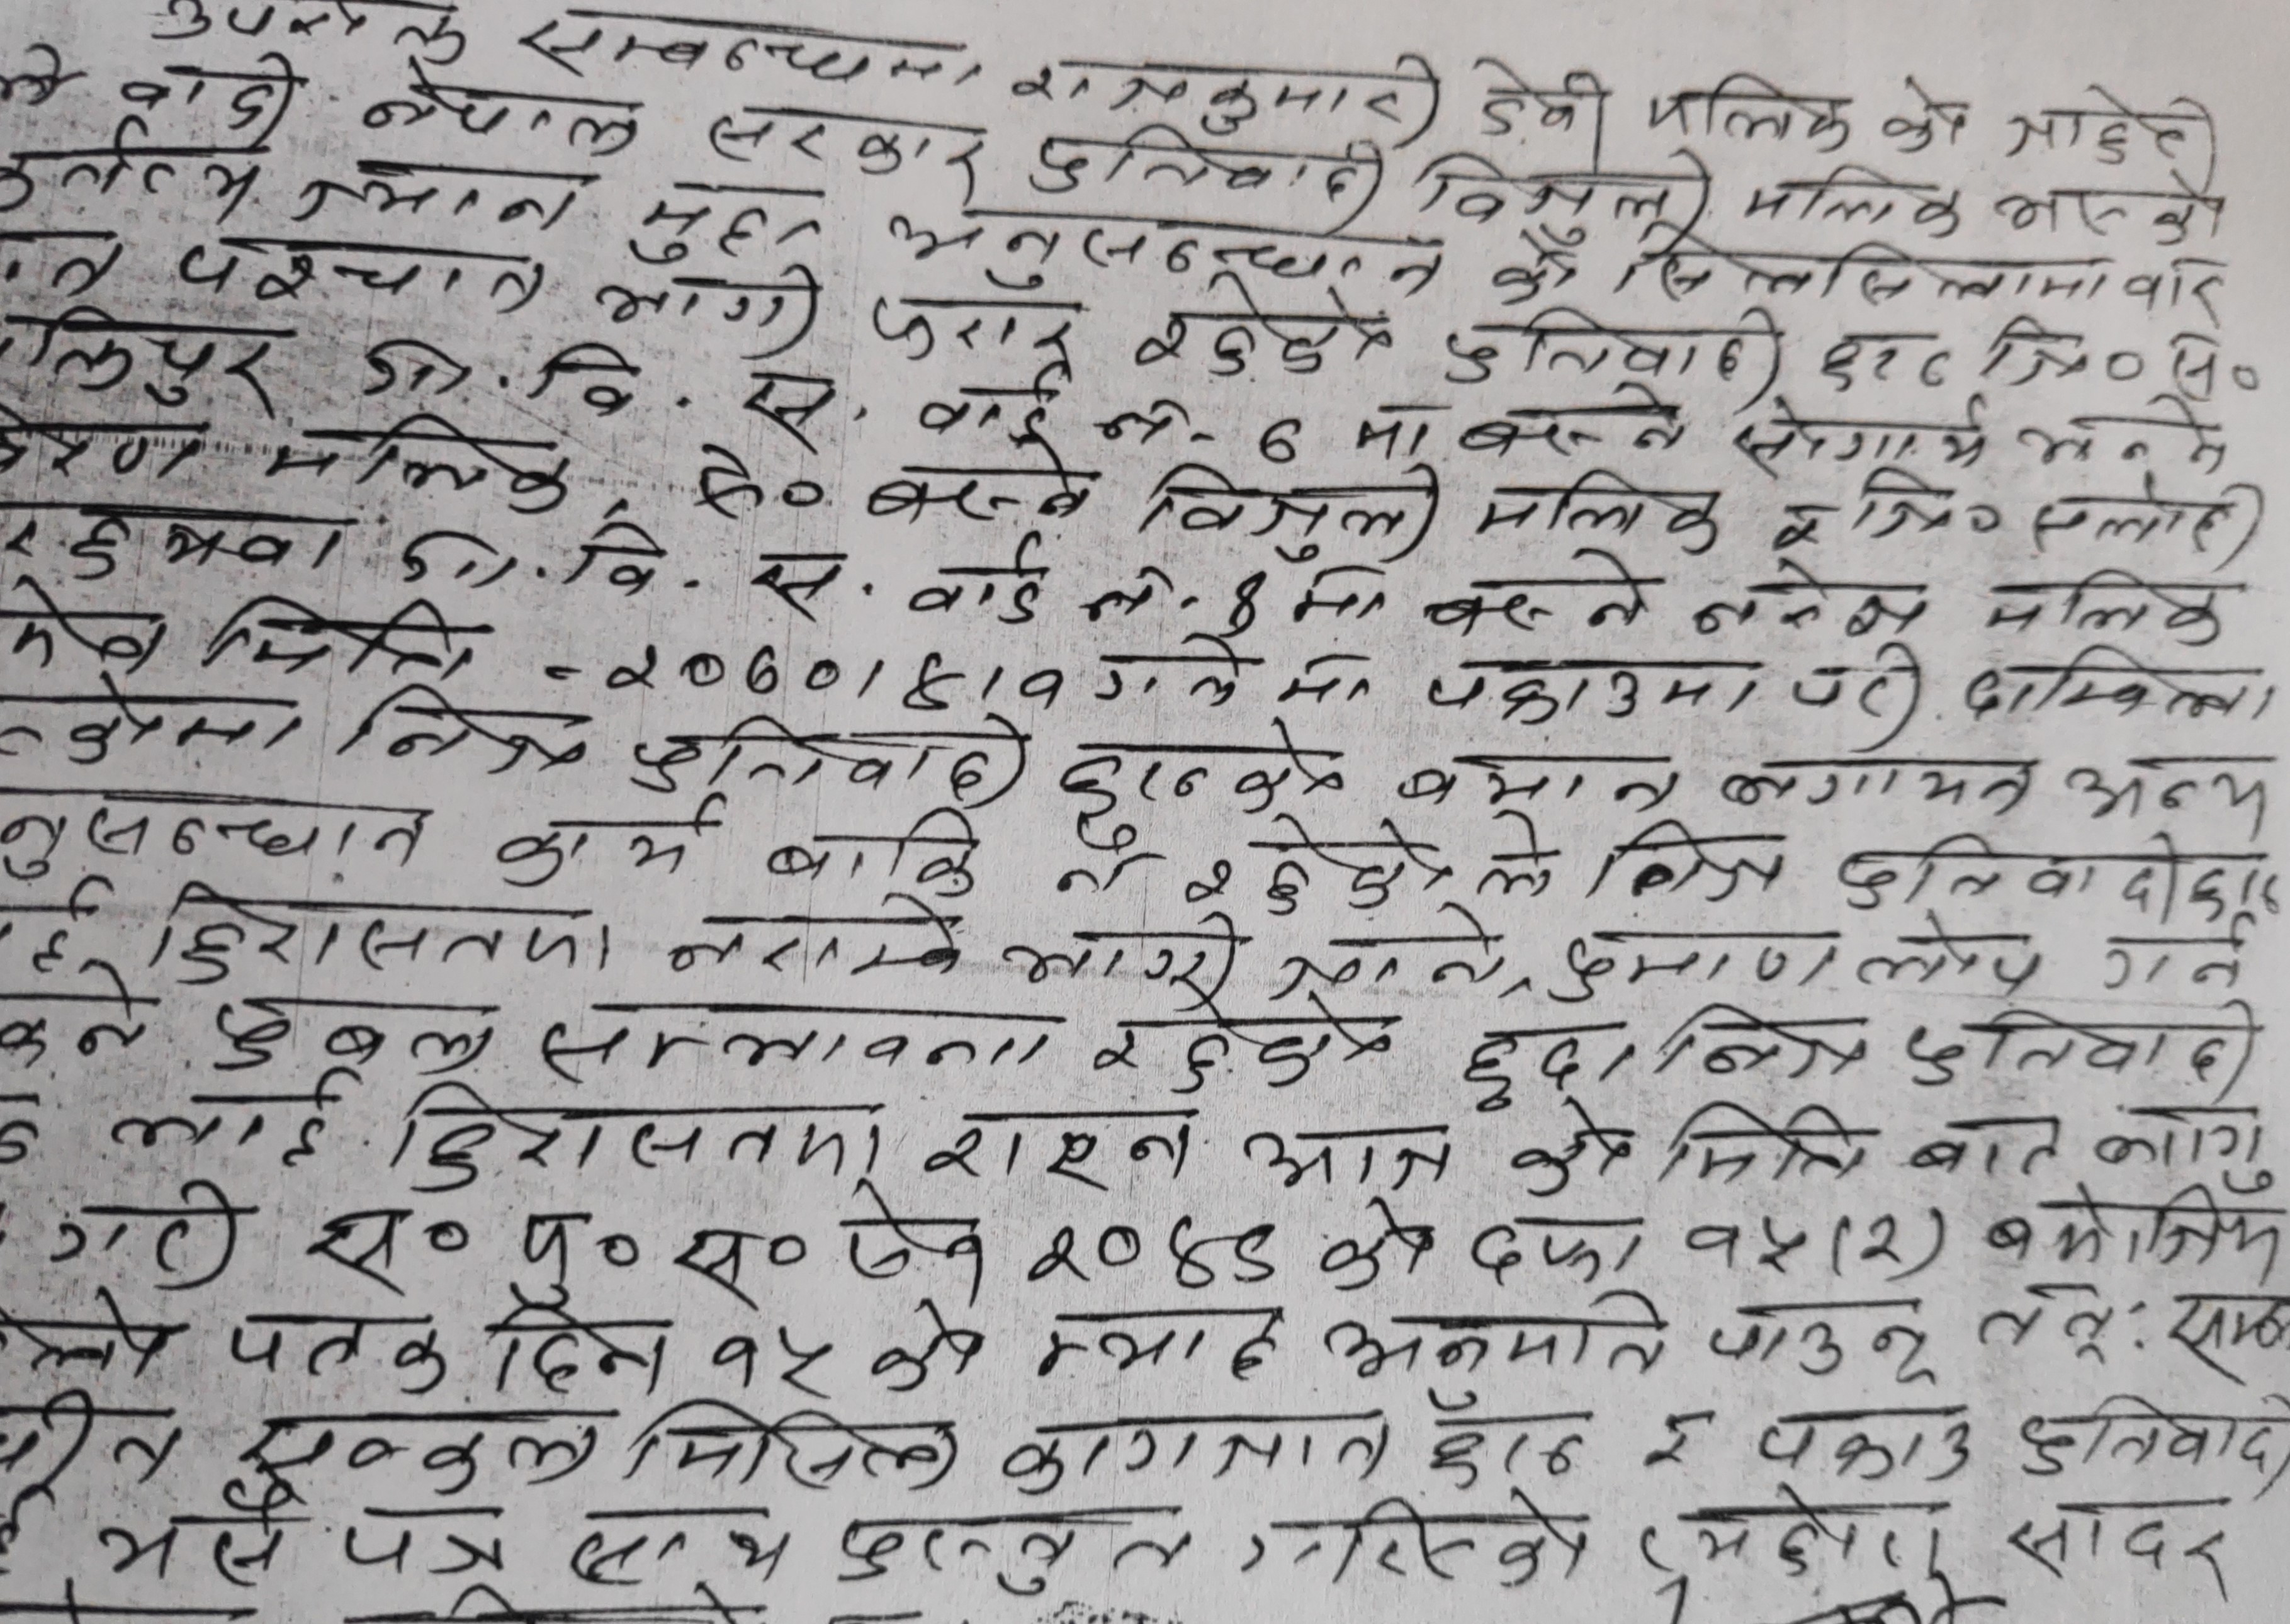 उपरोक्त सम्बन्धमा राजकुमारी देवी मलिक को जाहेरी
ले वादी नेपाल सरकार प्रतिवादी विजुली मलिक भएको
कर्तव्य ज्यान मुद्दा अनुसन्धान को सिलसिलामा वार
पश्चात भागी फरार रहेको प्रतिवादी हरु जि० स०
गा.वि.स. वार्ड नं. ६ मा बस्ने सोगार्थ भन्ने
मलिक, ऐ० बस्ने विजुली मलिक र जि० सर्लाही
गा.वि.स. वार्ड नं. ४ मा बस्ने नरेश मलिक
मिति -२०६०।४।१ गते मा पक्राउमा परी दाखिला
निज प्रतिवादी हरुको बयान लगायत अन्य
नुसन्धान कार्य बाकि नै रहेकोले निज प्रतिवादीहरु
हिरासतमा नराखे भागी जाने, प्रमाण लोप गर्न
प्रबल सम्भावना रहेको हुदा निज प्रतिवादी
लाई हिरासतमा राख्न आज को मिति बाट लागु
गरी स० मु० स० ऐन २०४९ को दफा १५(२) बमोजिम
पतक दिन १५ को म्याद अनुमति पाउन
सक्कल मिसिल कागजात हरु र पक्राउ प्रतिवादी
यसै पत्र साथ प्रस्तुत गरिएको सादर